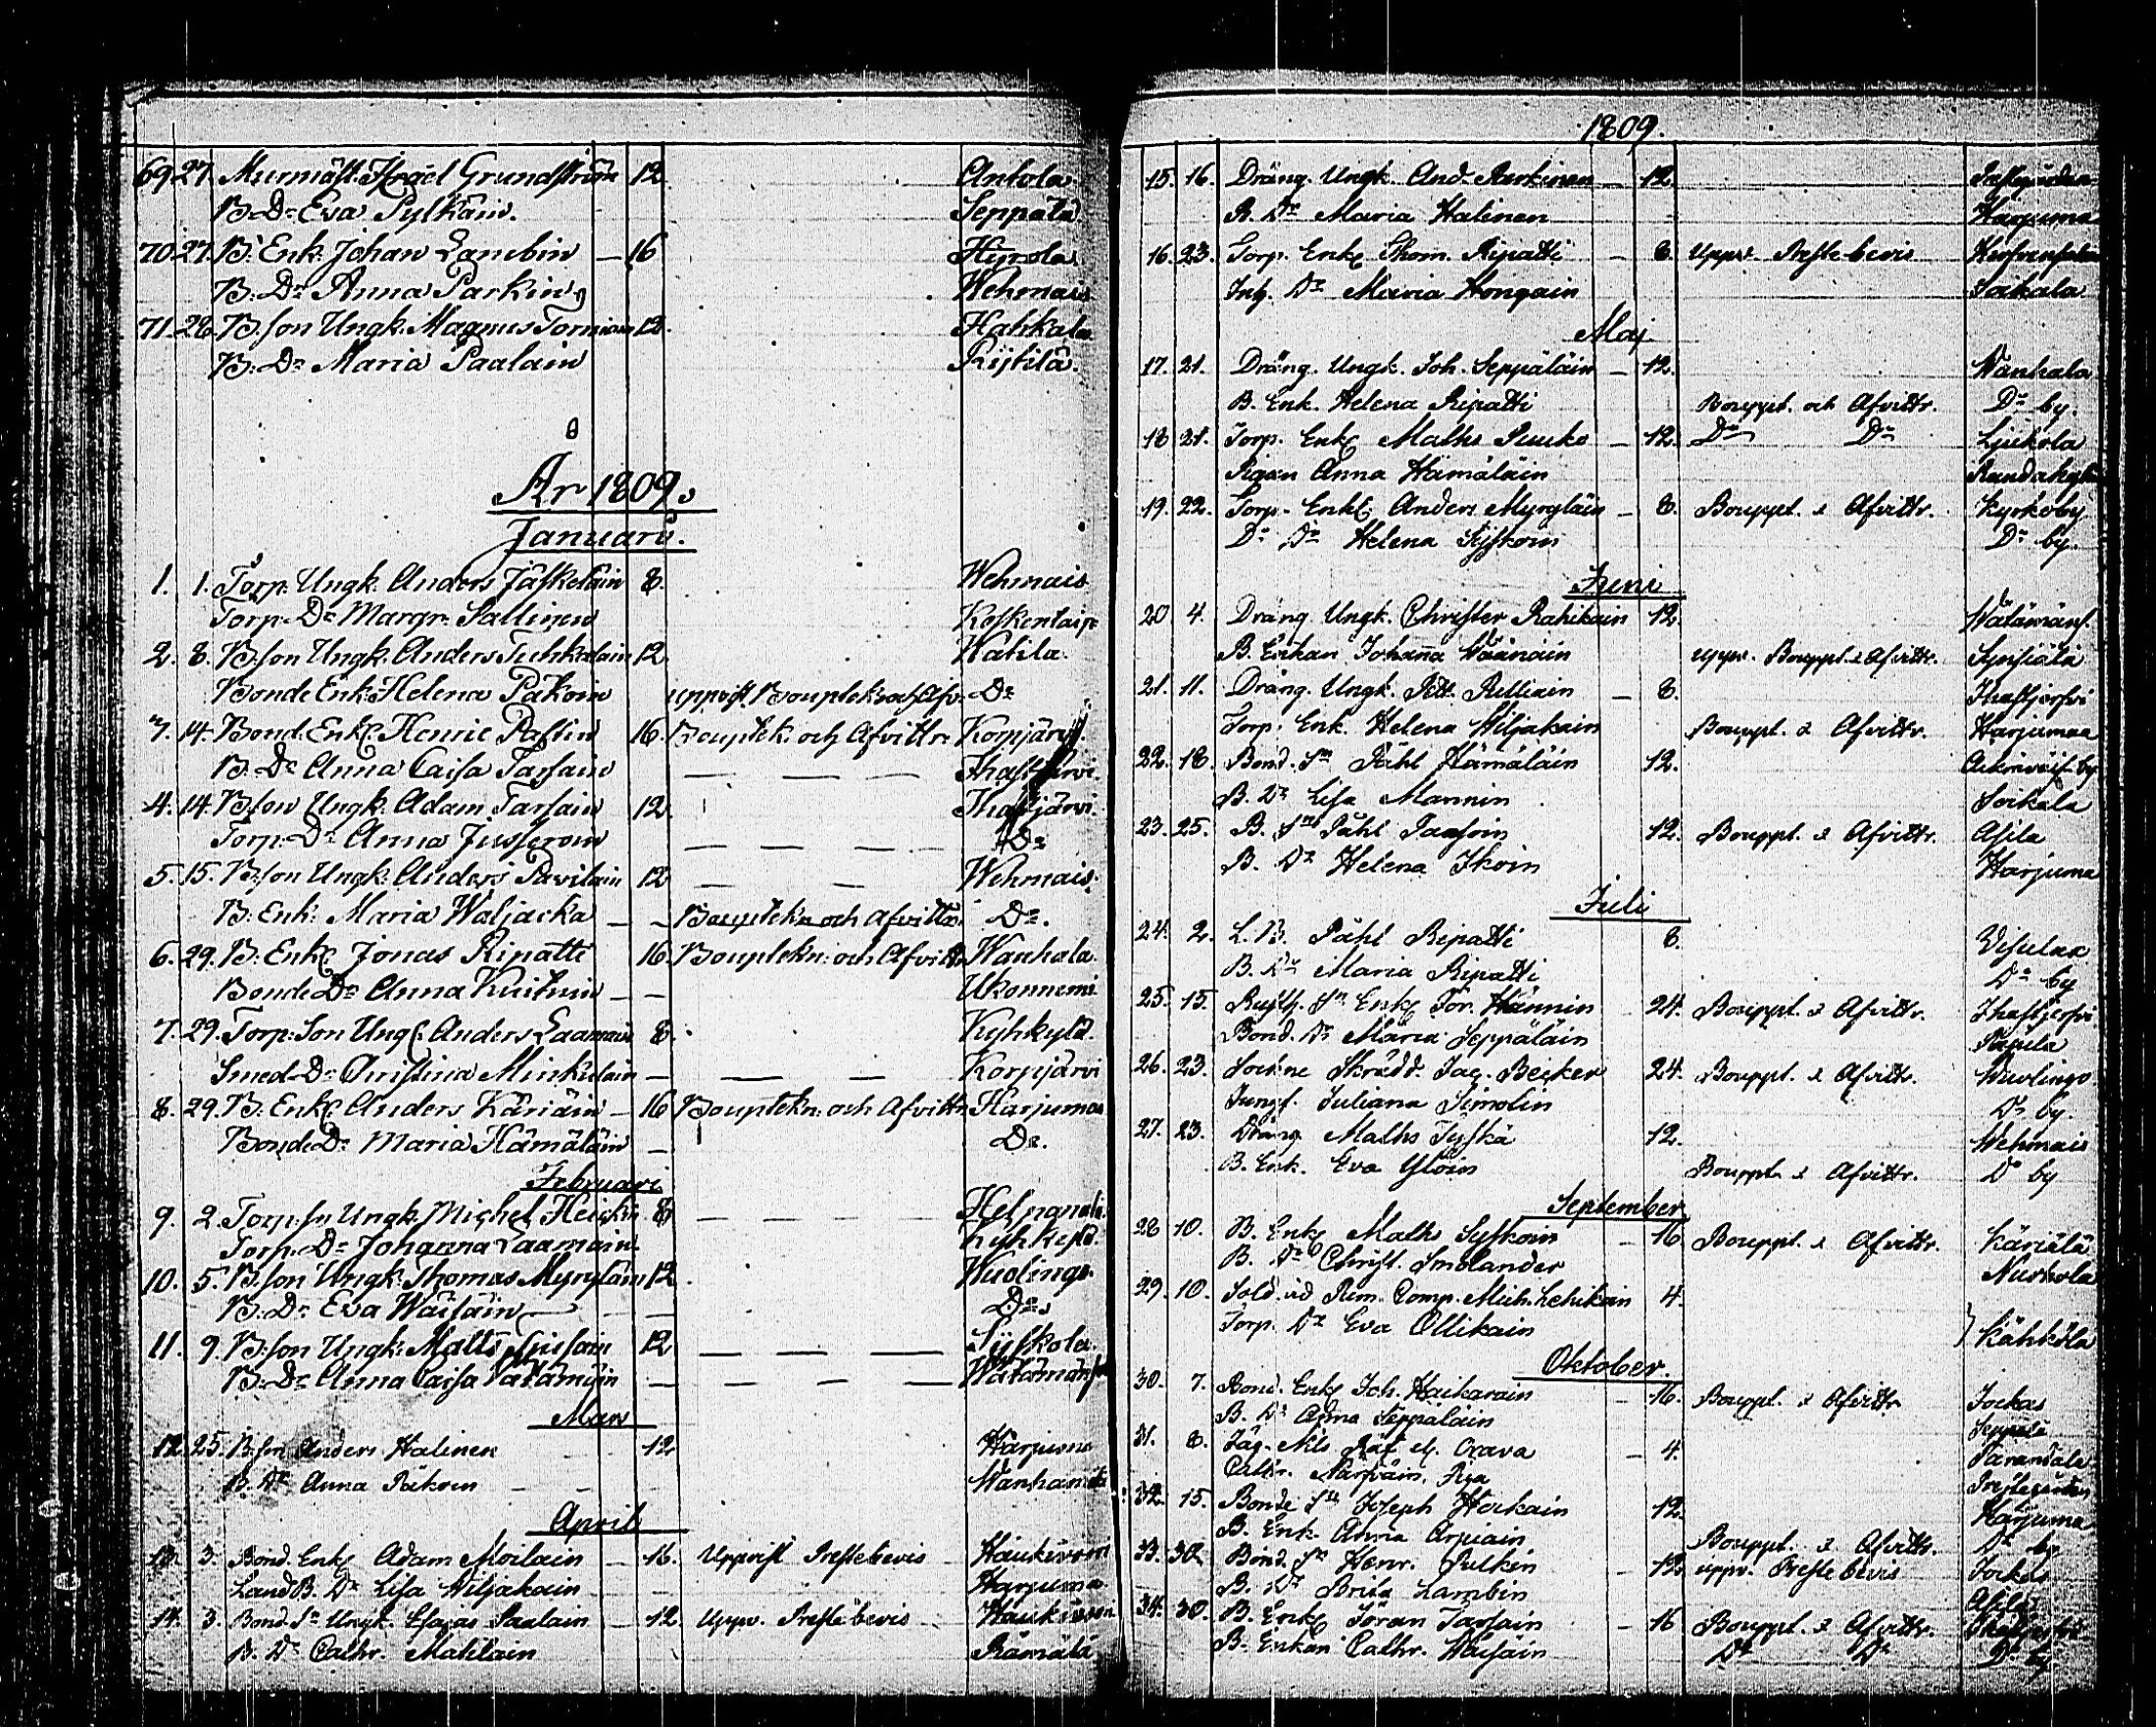 69. 27. Murmäst. Israel Grundström 12. Antola
B. Dr Eva Pylkäin. Seppälä
70. 27. B. Enk. Johan Lambin — 16 Hyrola
B. Dr Anna Parkin Wehmais
71. 26. B. son Ungk. Magnus Torniain 12. Hahkala
B. Dr Maria Paalain Rytilä.
År 1809.
Januarii.
1. 1. Torp. Ungk. Anders Jäskeläin 8. Wehmais
Torp. Dr Margr. Sallinen Koskentaip.
2. 8. B. son Ungk. Anders Tuhkalain 12. Watila.
Bonde Enk. Helena Päkoin uppvist Bouptekn. och Afv. Do
3. 14. Bond. Enkl. Henric Pastin 16. Bouptek. och Afvittr. Korpjärvi.
B. Dr Anna Caisa Tarsain — — — Ihastjärvi.
4. 14. B. son Ungk. Adam Tarsain 12. Ihastjärvi.
Torp. Dr Anna Jusseroin — — — — Do
5. 15. B. son Ungk. Anders Pavilain 12 — — Wehmais.
B. Enk. Maria Waljacka — — Bouptekn och Afvittr. Do.
6. 29. B. Enkl. Jonas Ripatti 16. Bouptekn. och Afvittr. Wanhala.
Bonde Dr Anna Kuituin — — Ukonnemi
7. 29. Torp. Son Ungk. Anders Laamain 8. Kyhkylä.
Smed. Dr Christina Minkuläin — — — Korpijärvi
8. 29. B. Enkl. Anders Käriäin — 16 Bouptekn. och Afvittr. Harjumaa
Bonde Dr Maria Hämäläin — Do.
Februarii
9. 2. Torp. sn Ungk. Michel Heickin 8 — — — Helpanala
Torp. Dr Johanna Laamain. Kyhkylä
10. 5. B. son Ungk. Thomas Myryläin 12. Wuolingo.
B. Dr Eva Wäisäin — — Do.
11. 9. B. son Ungk. Matts Liusain 12. — — — — Syskola.
B. Dr Anna Caisa Wätämäin — — — — Wätämäns
Mars
12. 25. B. son Anders Halinen — 12. Harjuma
B. Dr Anna Päkoin — — Wanhamäki
April
13. 3. Bond. Enkl. Adam Moilain — 16. Uppvist Prestebevis — Haukivuori
Land B. Dr Lisa Wiljakain — Harjuma
14. 3. Bond. Sn Ungk. Esaias Paalain — 12. Uppv. Prestebevis — Haukivuori
B. Dr Cathr. Matilain Rämälä
1809.
15. 16. Dräng. Ungk. And. Parkinen — 12. Prestgården
B. Dr Maria Halinen Harjuma
16. 23. Torp. Enkl. Thom. Ripatti — 8. Uppv. Prestebevis Hirvensalmi
Inh. Dr Maria Hongain Saikala
Maj
17. 21. Dräng. Ungk. Joh. Seppäläin — 12. Wanhala
B. Enk. Helena Ripatti Bouppt. och Afvittr. Do by.
18 21. Torp. Enkl. Maths Puuko — 12. Do Do Ljukola
Pigan Anna Hämäläin
19. 22. Torp. Enkl. Anders Myryläin — 8. Bouppt. & Afvittr. Kyrkoby
Do Dr Helena Syskoin Do by.
Juni
20 4. Dräng. Ungk. Christer Rahikain 12. Wätämäns.
B. Enkan Johanna Wäänäin uppv. Bouppt. & Afvittr. Synsiälä
21. 11. Dräng. Ungk. Pett. Pulliain — 8. Ihastjerfvi
Torp. Enk. Helena Wiljakain Bouppt. & Afvittr. Harjumaa
22. 18. Bond. Sn Påhl Hämäläin 12.
B. Dr Lisa Mannin Soikala
23. 25. B. Sn Påhl Paasoin 12. Bouppt. & Afvittr. Asila
B. Dr Helena Ikoin Harjuma
Juli
24. 2. L. B. Påhl Ripatti 8. Visulax
B. Dr Maria Ripatti Do by
25. 15. Rusth. Sn Enkl. Gör. Hännin — 24. Bouppt. & Afvittr. Ihastjerfvi
Bond. Dr Maria Seppäläin
26. 23. Sockne Skrädd. Jac. Becker 24. Bouppt. & Afvittr. Wuolingo
Jungf. Juliana Simolin Do by.
27. 23. Dräng Maths Tyskä 12. Wehmais
B. Enk. Eva Ylöin Bouppt. & Afvittr. Do by
September
28 10. B. Enkl. Maths Syskoin — 16 Bouppt. & Afvittr. Käriälä
B. Dr Christ. Smolander Nuskola
29. 10. Sold. vid Rem. Comp. Mich. Lehikoin 4.
Torp. Dr Eva Ollikain } Kähkölä
Oktober.
30. 7. Bond. Enkl. Joh. Haikarain — 16. Bouppt. & Afvittr. Jockas
B. Dr Anna Seppäläin Seppälä
31. 8. Jäg. Nils Räf el. Orava — 4. Parantala
Cathr. Narfväin, Piga Prestgården
32. 15. Bonde Sn Joseph Hockain 12. Harjuma
B. Enk. Anna Arpiain Bouppt. & Afvittr. Do by
33. 30. Bond. Sn Henr. Pulkin — 12. uppv. Prestebevis Jockas
B. Dr Brita Lambin Asila
34. 30. B. Enkl. Göran Tarsain — 16 Bouppt. & Afvittr. Ihastjerfvi
B. Enkan Cathr. Wäisäin Do Do Do by